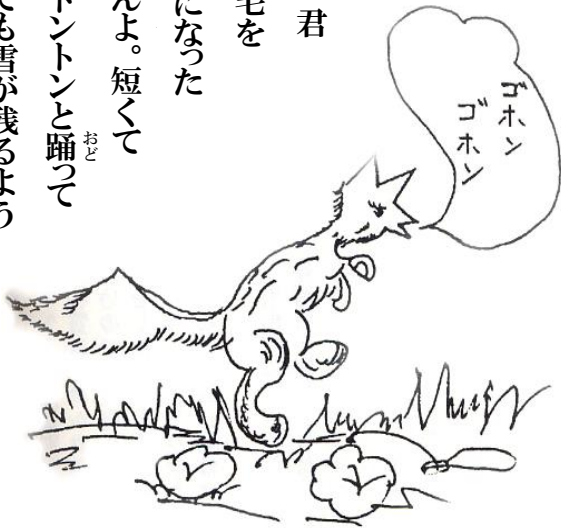 君
毛を
になった
んよ。短くて
トントンと踊って
おど
ても雪が残るよう
ゴホン
ゴホン